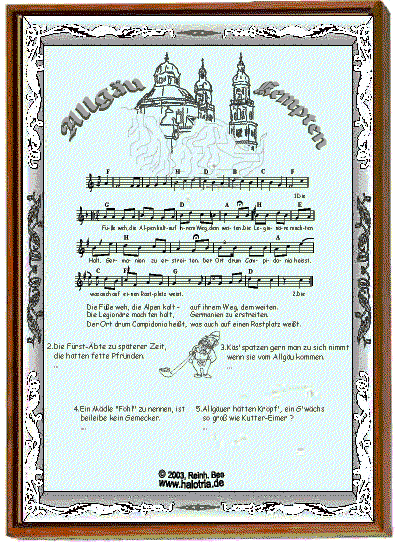 Allgäu
Kempten
F H D B C F
1.Die
G D A H E
Fü-ße weh, die Al-pen kalt - auf ih-rem Weg, dem wei-ten. Die Le-gio-nä-re mach-ten
H A
Halt, Ger-ma-nien zu er-strei-ten. Der Ort drum Cam-pi-do-nia heisst,
C F G D
was auch auf ei-nen Rast-platz weist. 2.Die
Die Füße weh, die Alpen kalt - auf ihrem Weg, dem weiten.
Die Legionäre machten halt, Germanien zu erstreiten.
Der Ort drum Campidonia heißt, was auch auf einen Rastplatz weißt.
2.Die Fürst-Äbte zu späterer Zeit,
die hatten fette Pfründen.
...
3.Kas' spatzen gern man zu sich nimmt
wenn sie vom Allgäu kommen.
...
4.Ein Mädle "Föhl" zu nennen, ist
beileibe kein Gemecker.
...
5.Allgäuer hätten Kröpf', ein G'wächs
so groß wie Kutter-Eimer ?
...
© 2003, Reinh. Bes
www.halotria.de